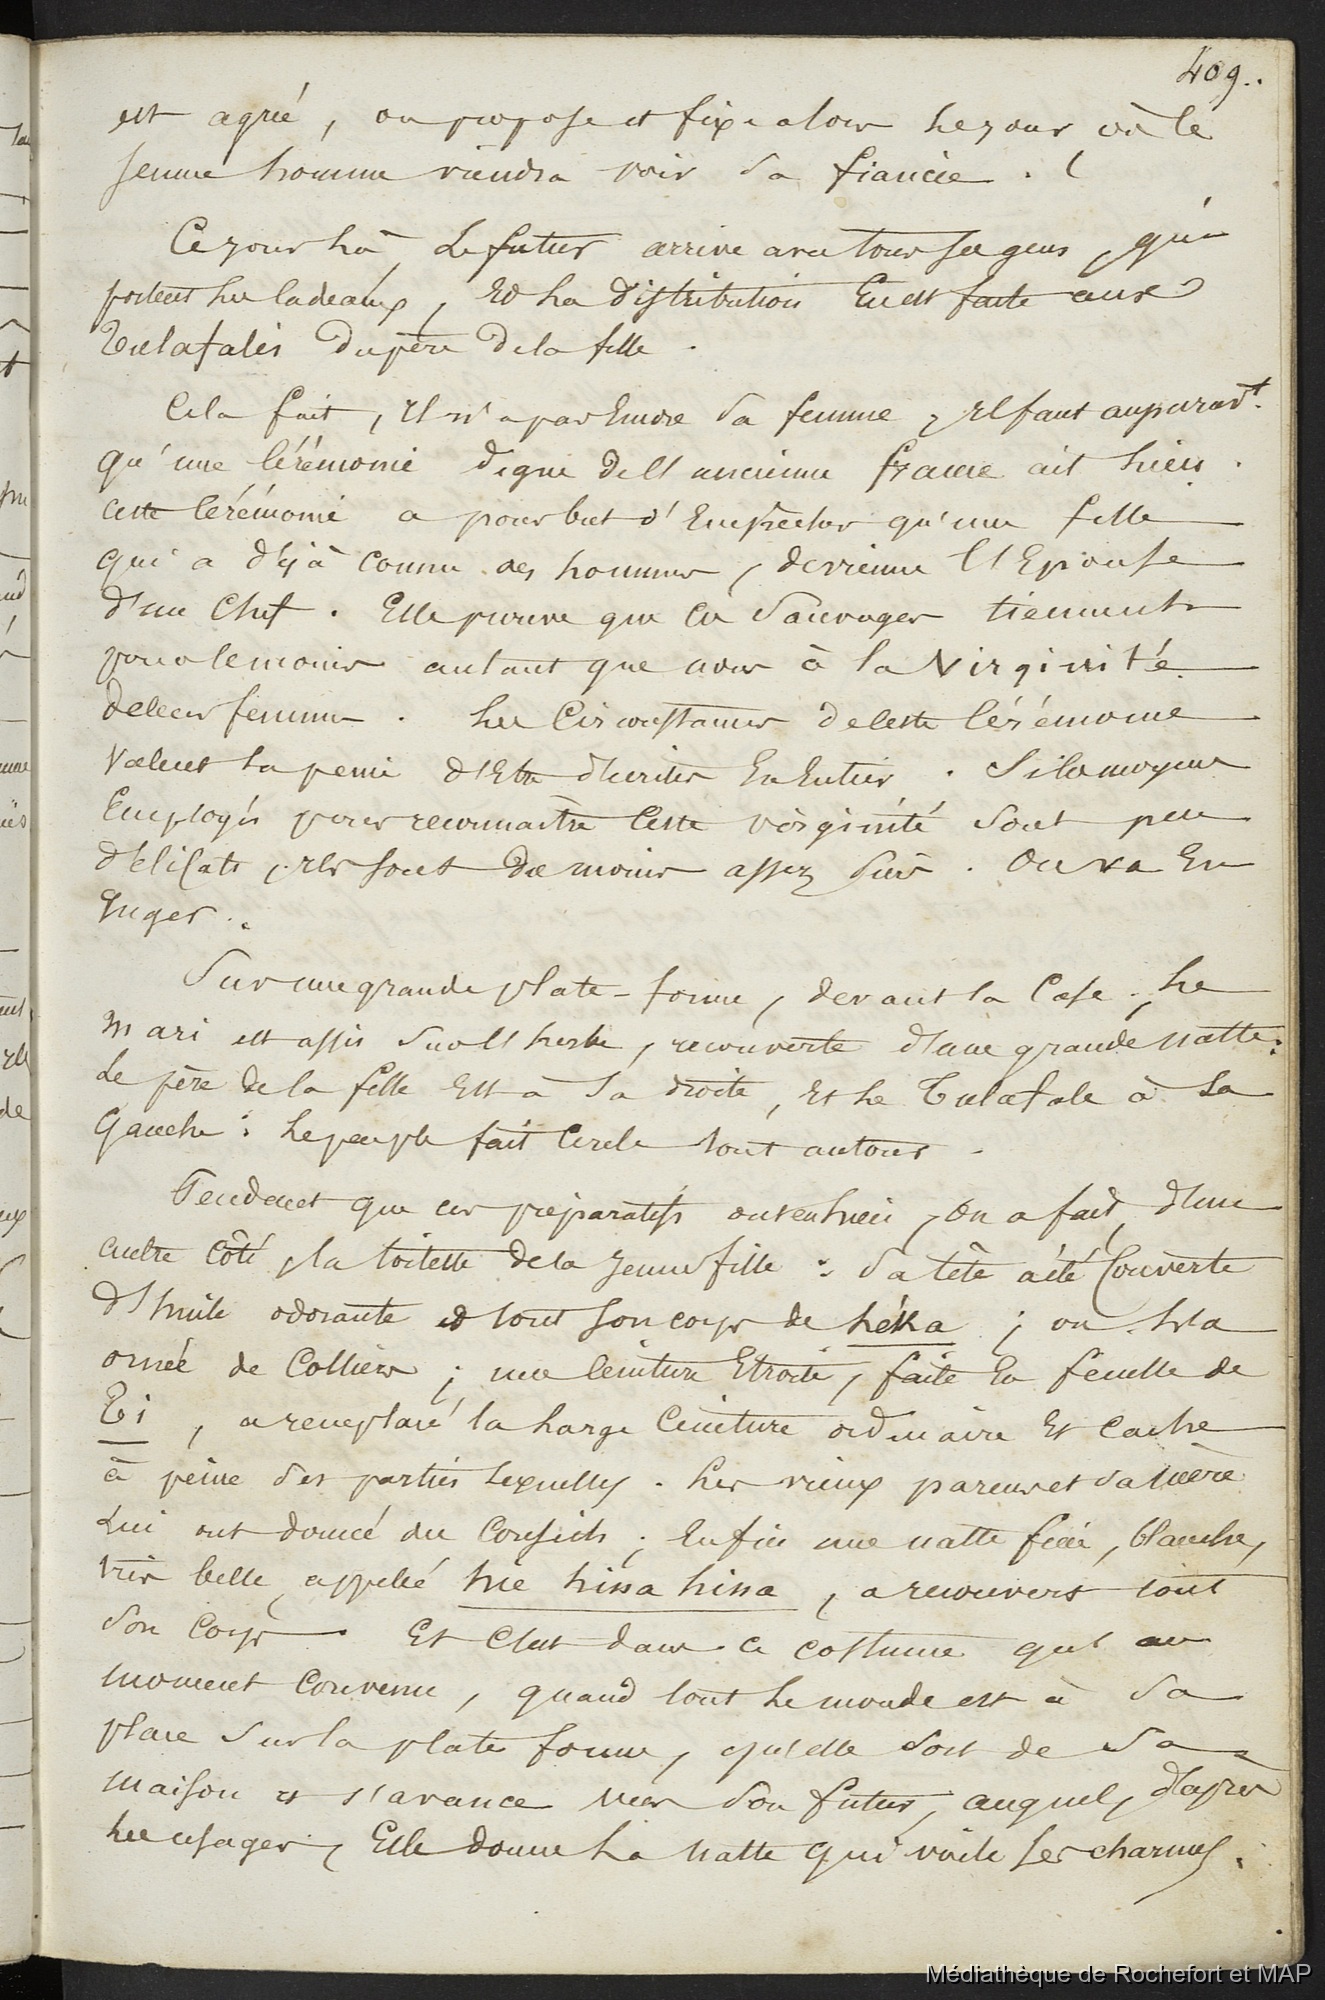 409..
est agréé, on propose et fixe alors le jour où le
jeune homme viendra voir sa fiancée.
Ce jour là, le futur arrive avec tous ses gens, qui
portent les cadeaux, et la distribution en est faite aux
Tulafalés du père de la fille.
Cela fait, il n'a pas encore sa femme, il faut auparavt.
qu'une cérémonie digne de l'ancienne france ait lieu.
cette cérémonie a pour but d'empêcher qu'une fille
qui a déjà connu des hommes, devienne l'épouse
d'un chef. Elle prouve que ces sauvages tiennent
pour le moins autant que nous à la virginité
de leur femme. Les circonstances de cette cérémonie
valent la peine d'être décrites en entier. Si les moyens
employés pour reconnaître cette virginité sont peu
délicats, ils sont du moins assez sûrs. On va en
juger.
Sur une grande plate-forme, devant la case, le
mari est assis sur l'herbe, recouverte d'une grande natte:
Le père de la fille est à sa droite, et le Tulafale à sa
gauche: le peuple fait cercle tout autour.
Pendant que ces préparatifs ont eu lieu, on a fait, d'un
autre côté, la toilette de la jeune fille: sa tête a été couverte
d'huile odorante et tout son corps de léka; on l'a
ornée de colliers; une ceinture étroite, faite en feuille de
Ti, a remplacé la large ceinture ordinaire et cache
à peine ses parties sexuelles. Les vieux parents et sa mère
lui ont donné des conseils; enfin une natte fine, blanche,
très belle appelée hie hissa hissa, a recouvert tout
son corps. Et c'est dans ce costume qu'au
moment convenu, quand tout le monde est à sa
place sur la plate forme, qu'elle sort de sa
maison et s'avance vers son futur, auquel, d'après
les usages, Elle donne la natte qui voile ses charmes.
Médiathèque de Rochefort et MAP